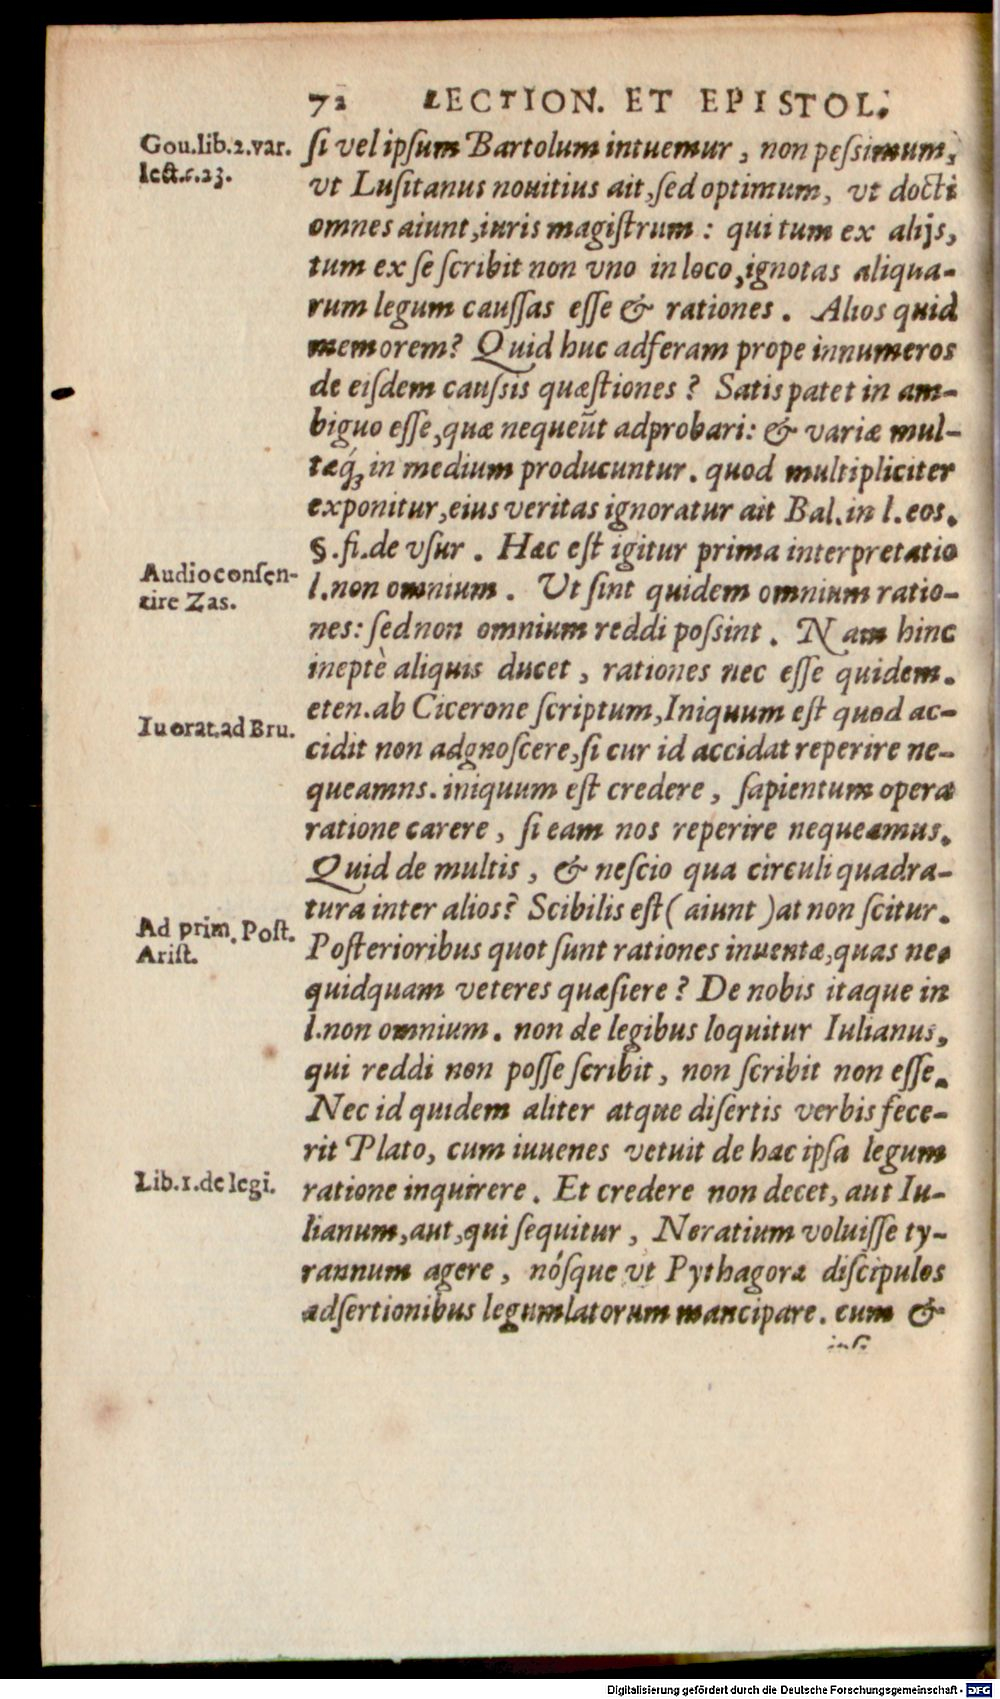 72 LECTION. ET EPISTOL.
Gou.lib.2.var.
lect.c.23.
ſi vel ipſum Bartolum intuemur, non peſsimum,
vt Luſitanus nouitius ait, ſed optimum, vt docti
omnes aiunt, iuris magiſtrum: qui tum ex alijs,
tum ex ſe ſcribit non vno in loco, ignotas aliqua-
rum legum cauſſas eſſe & rationes. Alios quid
memorem? Quid huc adferam prope innumeros
de eiſdem cauſsis quæſtiones? Satis patet in am-
biguo eſſe, quæ nequeũt adprobari: & variæ mul-
tæq́; in medium producuntur. quod multipliciter
exponitur, eius veritas ignoratur ait Bal. in l. eos.
§. fi. de vſur. Hæc eſt igitur prima interpretatio
Audio conſen-
tire Zas.
l. non omnium. Ut ſint quidem omnium ratio-
nes: ſed non omnium reddi poſsint. Nam hinc
ineptè aliquis ducet, rationes nec eſſe quidem.
eten. ab Cicerone ſcriptum, Iniquum eſt quod ac-
Iu orat. ad Bru.
cidit non adgnoſcere, ſi cur id accidat reperire ne-
queamns. iniquum eſt credere, ſapientum opera
ratione carere, ſi eam nos reperire nequeamus.
Quid de multis, & neſcio qua circuli quadra-
tura inter alios? Scibilis eſt (aiunt) at non ſcitur.
Ad prim. Poſt.
Ariſt.
Poſterioribus quot ſunt rationes inuentæ, quas ne
quidquam veteres quæſiere? De nobis itaque in
l. non omnium. non de legibus loquitur Iulianus,
qui reddi non poſſe ſcribit, non ſcribit non eſſe.
Nec id quidem aliter atque diſertis verbis fece-
rit Plato, cum iuuenes vetuit de hac ipſa legum
Lib.1.de legi.
ratione inquirere. Et credere non decet, aut Iu-
lianum, aut, qui ſequitur, Neratium voluiſſe ty-
rannum agere, nóſque vt Pythagoræ diſcipulos
adſertionibus legumlatorum mancipare. cum &
Digitalisierung gefördert durch die Deutsche Forschungsgemeinschaft - DFG